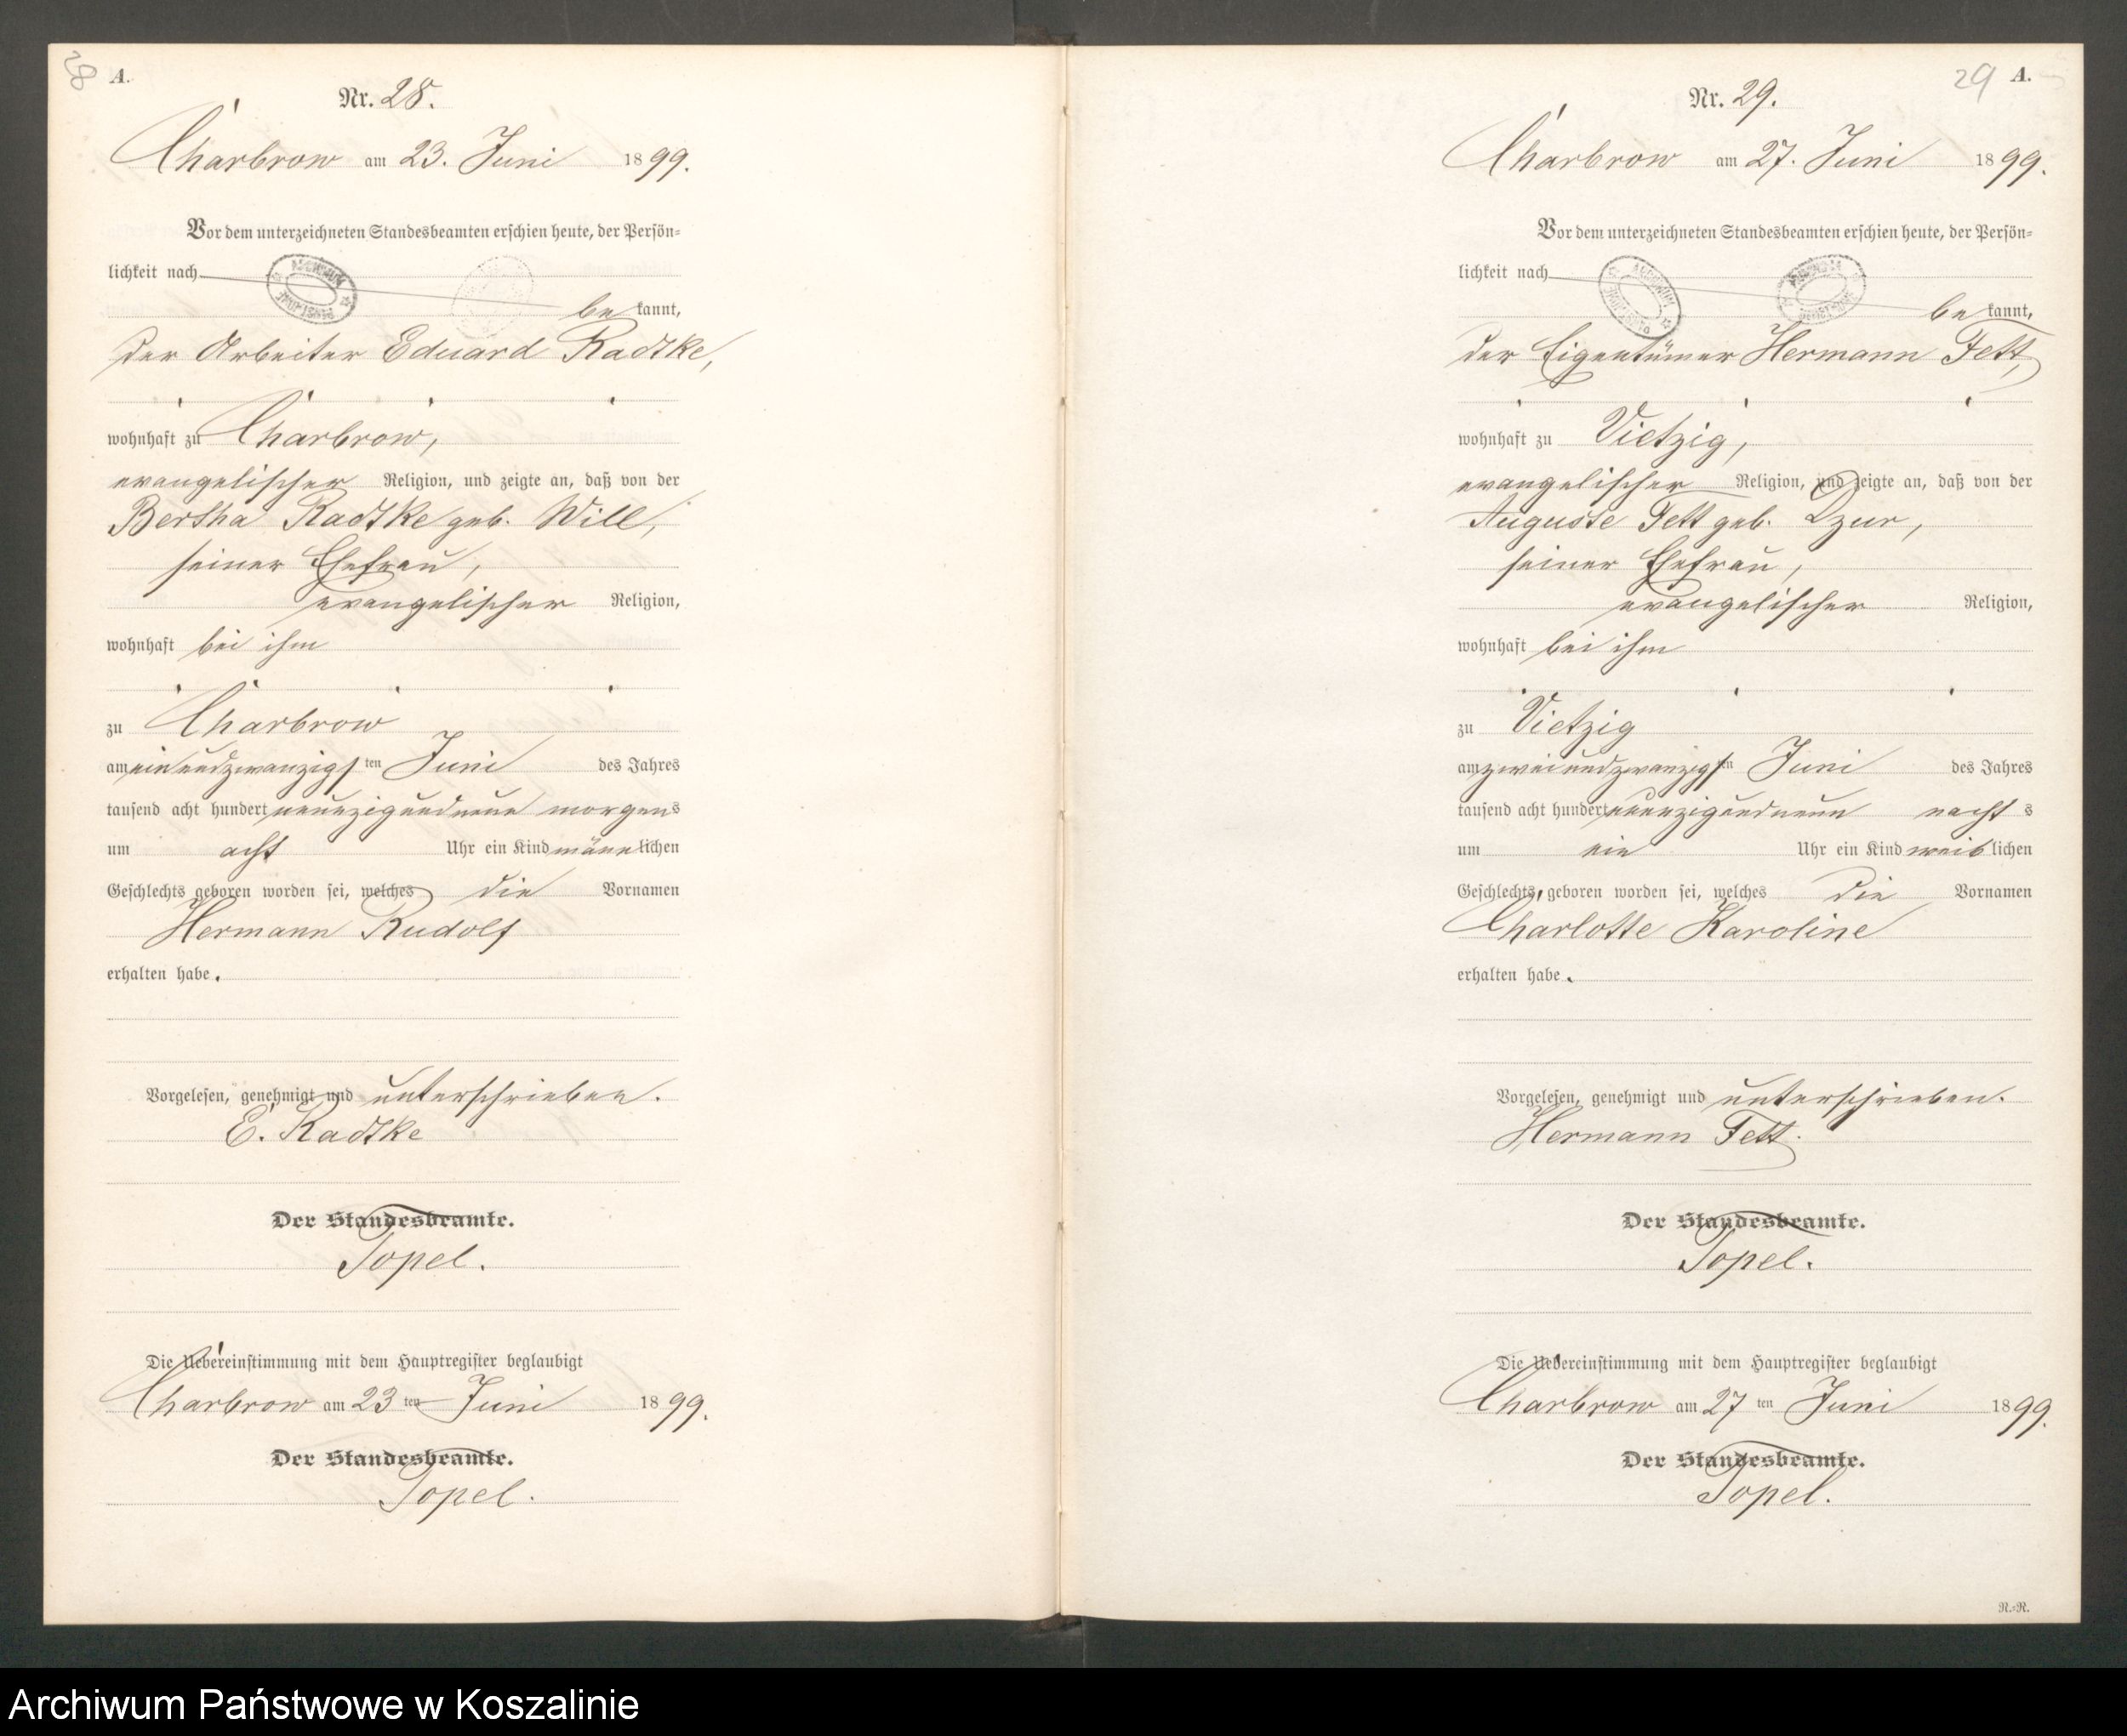 28
A.
Nr. 28.
Charbrow am 23. Juni 1899.
Vor dem unterzeichneten Standesbeamten erschien heute, der Persön-
lichkeit nach
ARCHIWUM PAŃSTWOWE
be kannt,
der Arbeiter Eduard Radtke,
wohnhaft zu Charbrow,
evangelischer Religion, und zeigte an, daß von der
Bertha Radtke geb. Will,
seiner Ehefrau,
evangelischer Religion,
wohnhaft bei ihm
zu Charbrow
am einundzwanzigsten Juni des Jahres
tausend acht hundert neunzigundneun morgens
um acht Uhr ein Kind männlichen
Geschlechts geboren worden sei, welches die Vornamen
Hermann Rudolf
erhalten habe.
Vorgelesen, genehmigt und unterschrieben.
E. Radtke
Der Standesbeamte.
Topel.
Die Uebereinstimmung mit dem Hauptregister beglaubigt
Charbrow am 23 ten Juni 1899.
Der Standesbeamte.
Topel.
29
A.
Nr. 29.
Charbrow am 27. Juni 1899.
Vor dem unterzeichneten Standesbeamten erschien heute, der Persön-
lichkeit nach
ARCHIWUM PAŃSTWOWE
be kannt,
der Eigentümer Hermann Fett,
wohnhaft zu Vietzig,
evangelischer Religion, und zeigte an, daß von der
Auguste Fett geb. Dzur,
seiner Ehefrau,
evangelischer Religion,
wohnhaft bei ihm
zu Vietzig
am zweiundzwanzigsten Juni des Jahres
tausend acht hundert neunzigundneun nachts
um ein Uhr ein Kind weiblichen
Geschlechts geboren worden sei, welches die Vornamen
Charlotte Karoline
erhalten habe.
Vorgelesen, genehmigt und unterschrieben.
Hermann Fett.
Der Standesbeamte.
Topel.
Die Uebereinstimmung mit dem Hauptregister beglaubigt
Charbrow am 27 ten Juni 1899.
Der Standesbeamte.
Topel.
R.-R.
Archiwum Państwowe w Koszalinie